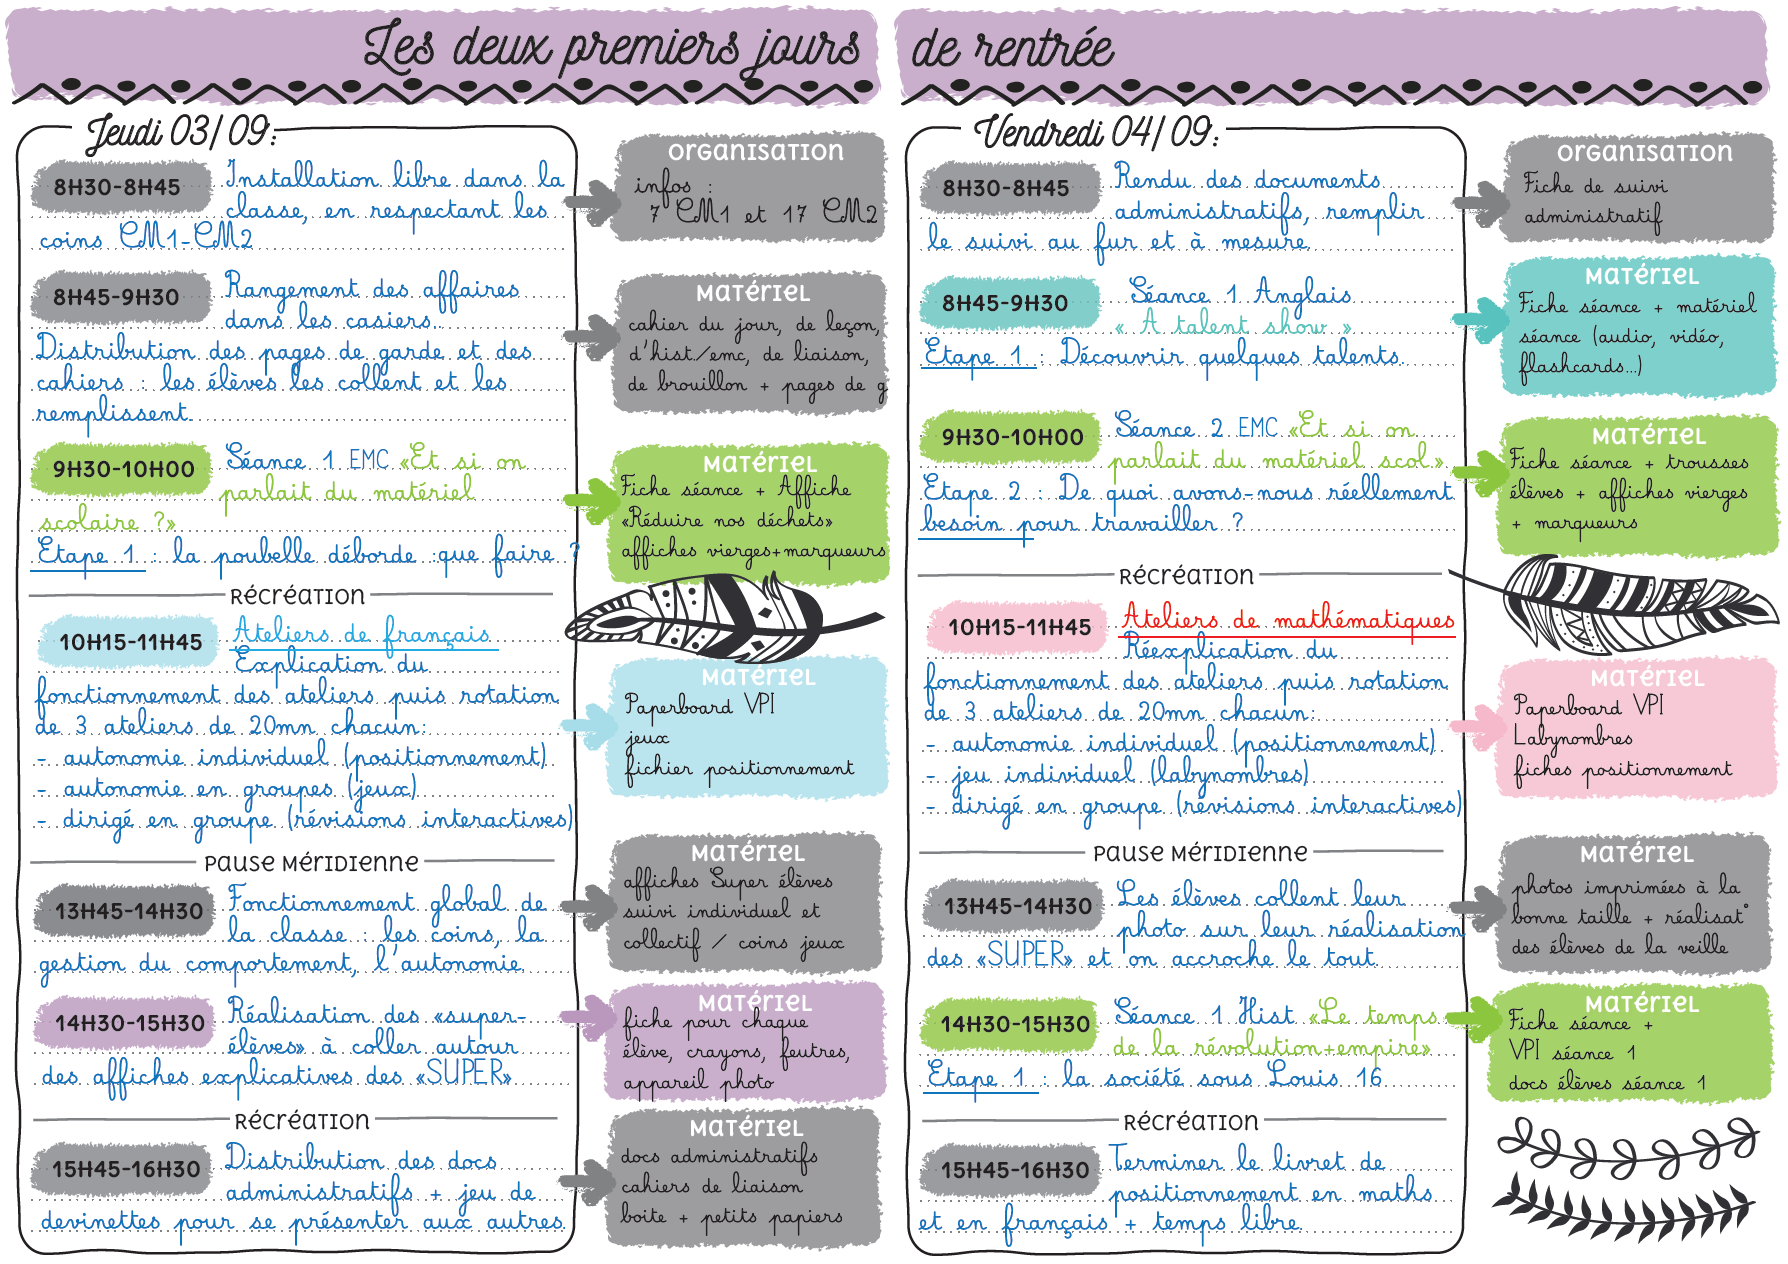 Les deux premiers jours
Jeudi 03/09:
8H30-8H45
Installation libre dans la
classe, en respectant les
coins CM1-CM2
organisation
infos :
7 CM1 et 17 CM2
8H45-9H30
Rangement des affaires
dans les casiers.
Distribution des pages de garde et des
cahiers : les élèves les collent et les
remplissent.
Matériel
cahier du jour, de leçon,
d'hist/emc, de liaison,
de brouillon + pages de g
9H30-10H00
Séance 1 EMC «Et si on
parlait du matériel
scolaire ?»
Etape 1 : la poubelle déborde :que faire ?
Matériel
Fiche séance + Affiche
«Réduire nos déchets»
affiches vierges+marqueurs
Récréation
10H15-11H45
Ateliers de français
Explication du
fonctionnement des ateliers puis rotation
de 3 ateliers de 20mn chacun:
- autonomie individuel (positionnement)
- autonomie en groupes (jeux)
- dirigé en groupe (révisions interactives)
Matériel
Paperboard VPI
jeux
fichier positionnement
Pause Méridienne
13H45-14H30
Fonctionnement global de
la classe : les coins, la
gestion du comportement, l'autonomie.
Matériel
affiches Super élèves
suivi individuel et
collectif / coins jeux
14H30-15H30
Réalisation des «super-
élèves» à coller autour
des affiches explicatives des «SUPER»
Matériel
fiche pour chaque
élève, crayons, feutres,
appareil photo
Récréation
15H45-16H30
Distribution des docs
administratifs + jeu de
devinettes pour se présenter aux autres
Matériel
docs administratifs
cahiers de liaison
boite + petits papiers
de rentrée
Vendredi 04/09:
8H30-8H45
Rendu des documents
administratifs, remplir
le suivi au fur et à mesure.
organisation
Fiche de suivi
administratif
8H45-9H30
Séance 1 Anglais
« A talent show »
Etape 1 : Découvrir quelques talents.
Matériel
Fiche séance + matériel
séance (audio, vidéo,
fllashcards...)
9H30-10H00
Séance 2 EMC «Et si on
parlait du matériel scol»
Etape 2 : De quoi avons-nous réellement
besoin pour travailler ?
Matériel
Fiche séance + trousses
élèves + affiches vierges
+ marqueurs
Récréation
10H15-11H45
Ateliers de mathématiques
Réexplication du
fonctionnement des ateliers puis rotation
de 3 ateliers de 20mn chacun:
- autonomie individuel (positionnement)
- jeu individuel (labynombres)
- dirigé en groupe (révisions interactives)
Matériel
Paperboard VPI
Labynombres
fiches positionnement
Pause Méridienne
13H45-14H30
Les élèves collent leur
photo sur leur réalisation
des «SUPER» et on accroche le tout.
Matériel
photos imprimées à la
bonne taille + réalisat°
des élèves de la veille
14H30-15H30
Séance 1 Hist «Le temps
de la révolution+empire»
Etape 1 : la société sous Louis 16
Matériel
Fiche séance +
VPI séance 1
docs élèves séance 1
Récréation
15H45-16H30
Terminer le livret de
positionnement en maths
et en français + temps libre.